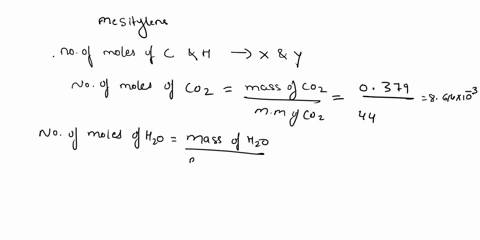 mesitylene
.No. of moles of C & H → X & Y
No. of moles of CO2 = mass of CO2 / m.m of CO2 = 0.379 / 44 = 8.616×10⁻³
No. of moles of H2O = mass of H2O